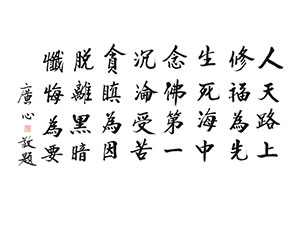 人天路上
修福為先
生死海中
念佛第一
沉淪受苦
貪瞋為因
脫離黑暗
懺悔為要
廣心敬題